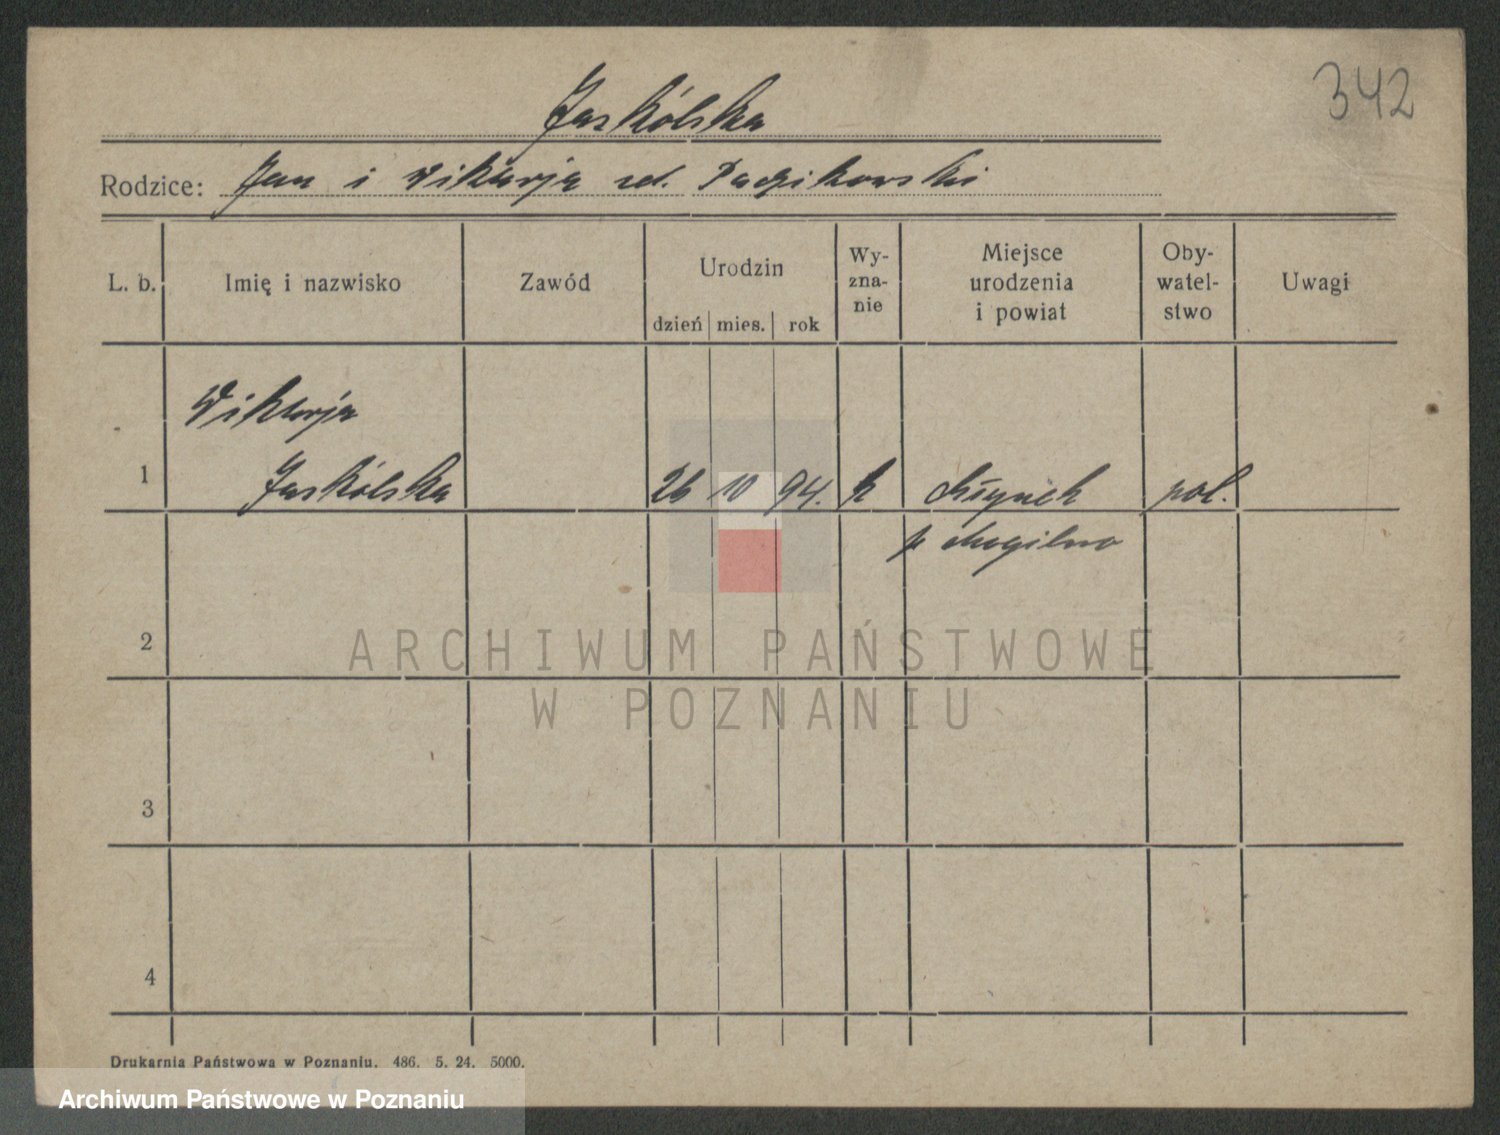 342
Jaskólska
Rodzice: Jan i Wiktorja
L. b. Imię i nazwisko Zawód Urodzin Wy-zna-nie Miejsce urodzenia i powiat Oby-watel-stwo Uwagi
dzień mies. rok
Wiktorja
1 Jaskólska 26 10 94. k Młynek pol.
p Mogilno
2
ARCHIWUM PAŃSTWOWE
W POZNANIU
3
4
Drukarnia Państwowa w Poznaniu. 486. 5. 24. 5000.
Archiwum Państwowe w Poznaniu